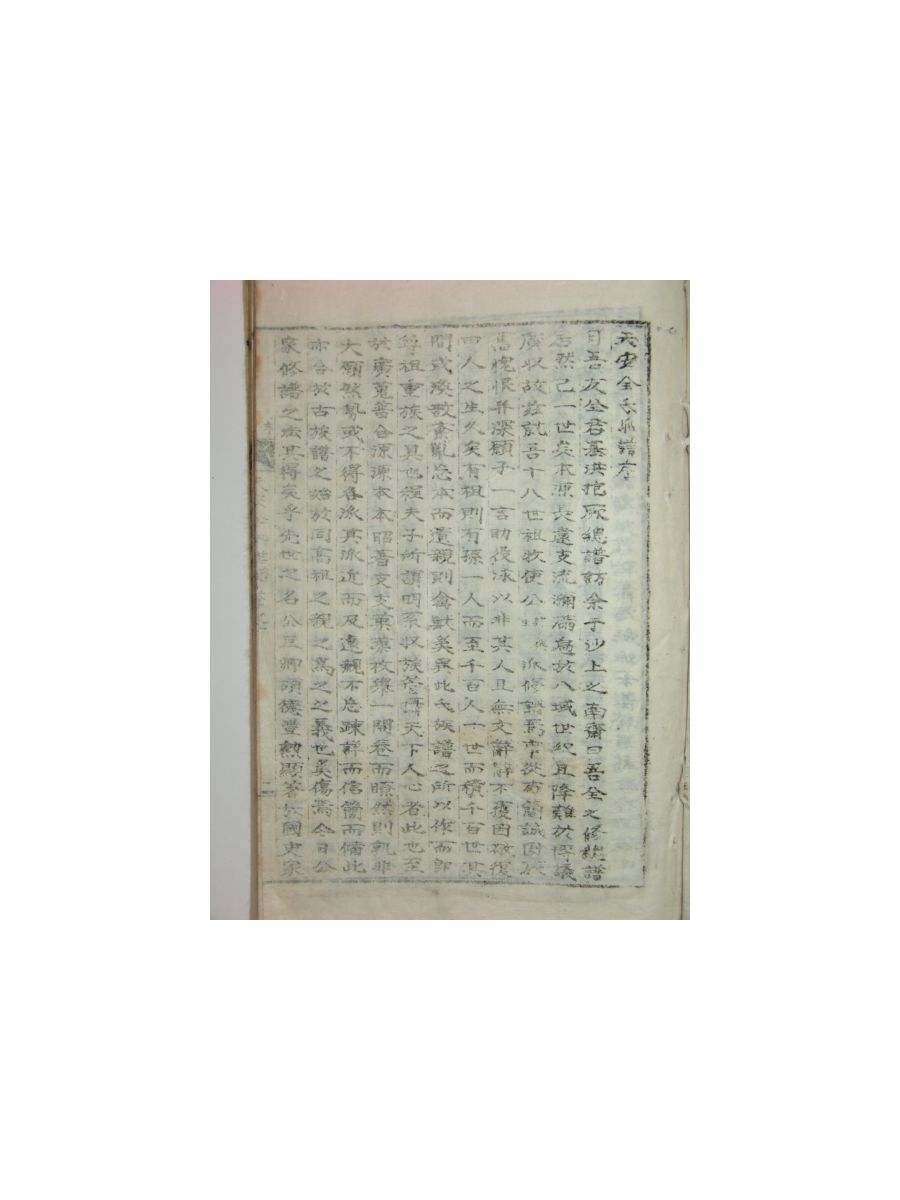 天安全氏派譜序
日吾友全君基洪抱厥總譜訪余于沙上之南齋曰吾全之修總譜
居然已一世矣本源長遠支流瀾 焉於八域世級且降難於博議
廣收故玆就吾十八世祖牧使公 派修 焉 苟簡誠
愧恨 深願子一言助役 以非其人且無文辭辭不獲因敬復
曰人之生久矣有祖則有孫一人而至千百人一世而積千百世其
間或渙散紊亂忘本而遺親則禽獸矣 此氏族譜之所以作而即
尊祖重族之具也程夫子所謂明 收族 天下人心者此也至
於廣蒐普合源源本本昭著支支葉葉枚擧一開卷而瞭然則孰非
大願然勢或不得各派其派近而及遠親不忘疎詳而信簡而備此
亦合於古族譜之始於同高祖之親之爲之之義也奚傷焉今日公
家修譜之法其得矣乎先世之名公巨卿碩德豊勲顯著於國史家